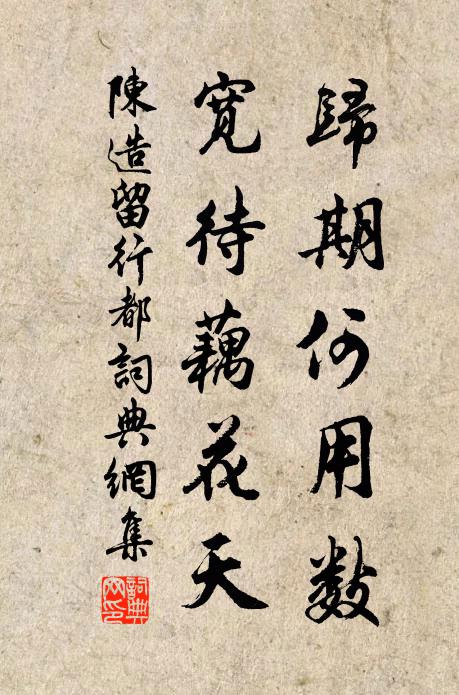 歸期何用數
寬待藕花天
陳造留行都詞典網集
詞典網印